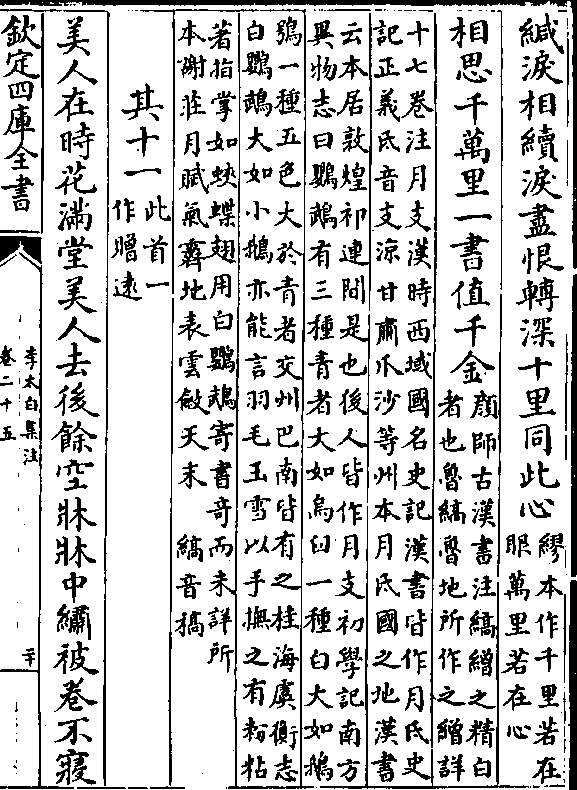 緘淚相續淚盡恨轉深十里同此心繆本作千里若在
眼萬里若在心
相思千萬里一書值千金顔師古漢書注縞繒之精白
者也魯縞魯地所作之繒詳
十七卷注月支漢時西域國名史記漢書皆作月氏史
記正義氏音支涼甘肅爪沙等州本月氏國之地漢書
云本居敦煌祁連間是也後人皆作月支初學記南方
異物志曰鸚鵡有三種青者大如烏臼一種白大如鴟
鴞一種五色大於青者交州巴南皆有之桂海虞衡志
白鸚鵡大如小鵝亦能言羽毛玉雪以手撫之有粉粘
著指掌如蛺蝶翅用白鸚鵡寄書奇而未詳所
本謝莊月賦氣霽地表雲斂天末　縞音稿
其十一此首一
作贈遠
美人在時花滿堂美人去後餘空牀牀中繡被卷不寢
欽定四庫全書
李太白集注
卷二十五
二十